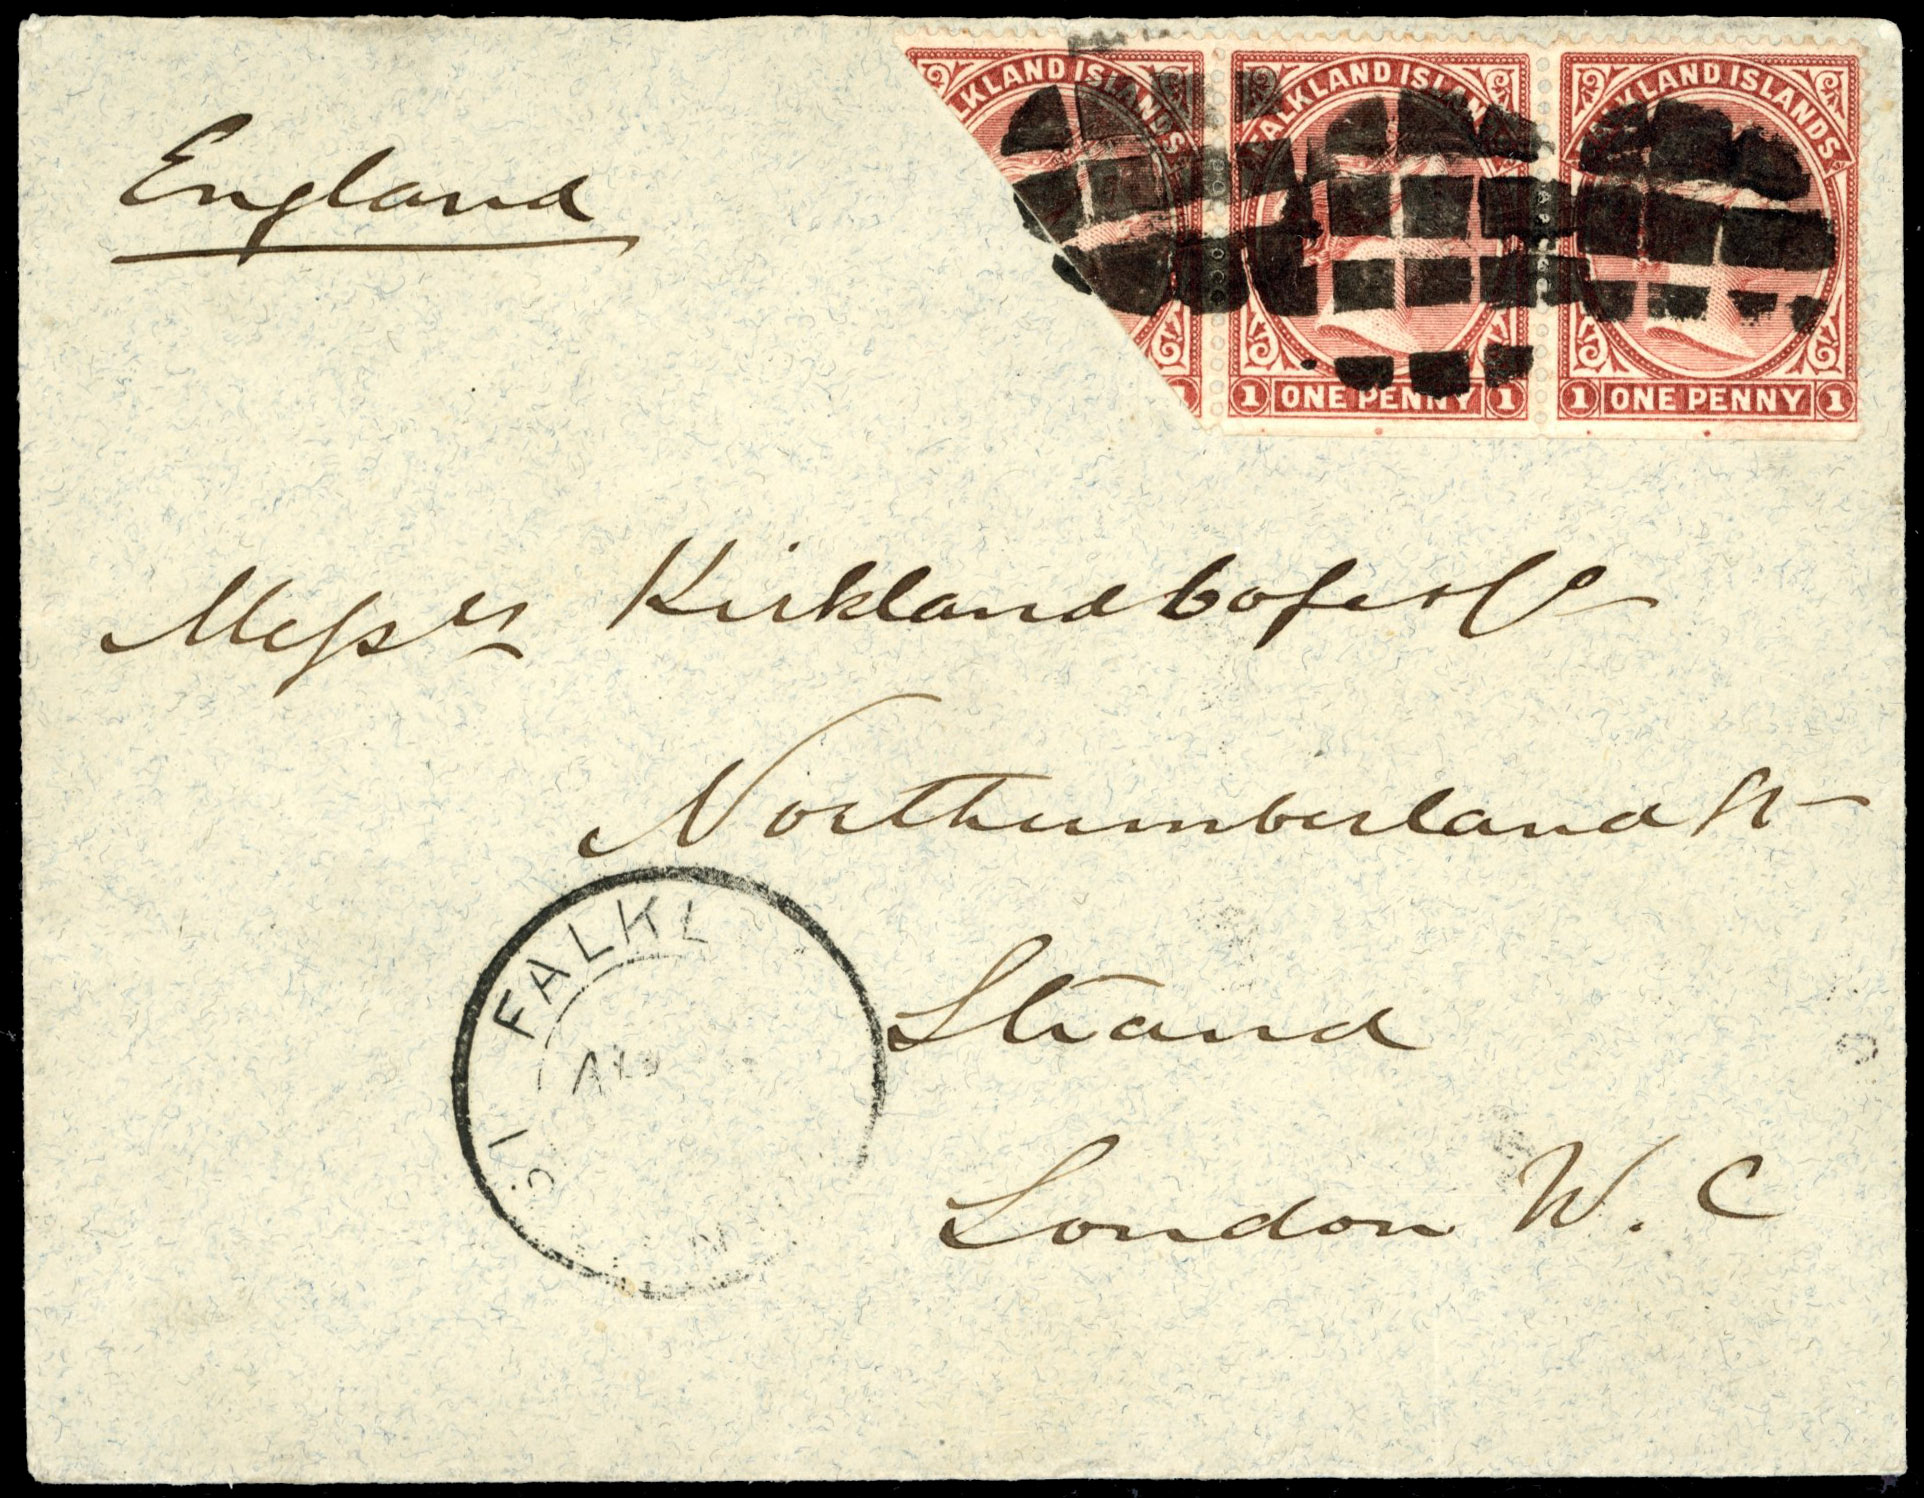 ALKLAND ISLANDS
FALKLAND ISLANDS
FALKLAND ISLANDS
1
1 ONE PENNY 1
1 ONE PENNY 1
England
Messrs Kirkland Cope & Co
Northumberland St
Strand
London W. C
FALKL